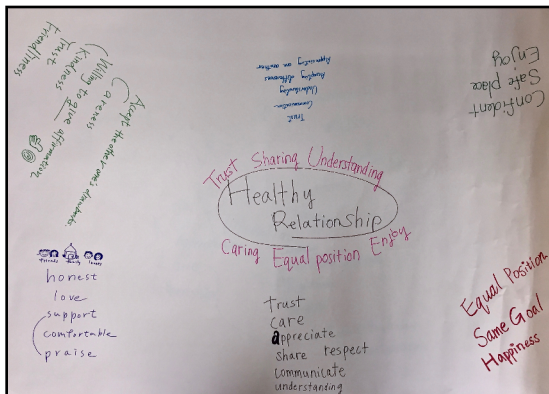 Friendliness
Trust
(Kindness
(Willing to give affirmation
Careness
Accept the other one's drawbacks.
Trust
Communication
Understanding
Accepting differences
Appreciating one another
Confident
Safe place
Enjoy
Trust Sharing Understanding
Healthy
Relationship
Caring Equal position Enjoy
friends family lovers
honest
love
support
comfortable
praise
trust
care
appreciate
share respect
communicate
understanding
Equal Position
Same Goal
Happiness